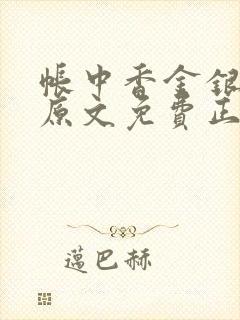 帳中香金銀
原文免費正
邁巴赫